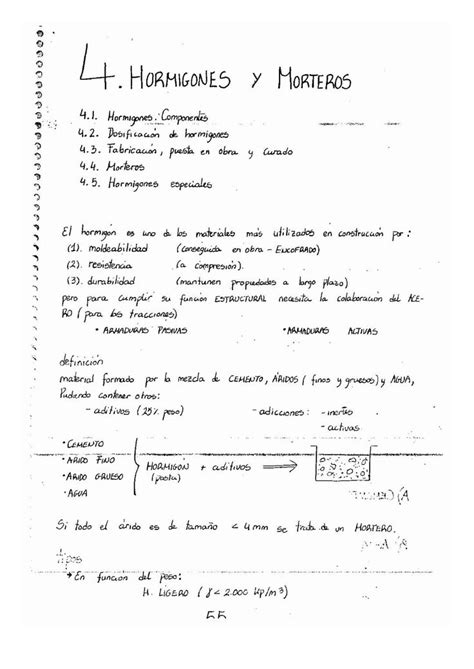 4. HORMIGONES Y MORTEROS
4.1. Hormigones. Componentes
4.2. Dosificación de hormigones
4.3. Fabricación, puesta en obra y curado
4.4. Morteros
4.5. Hormigones especiales
El hormigón es uno de los materiales más utilizados en construcción por:
(1). moldeabilidad (conseguida en obra - ENCOFRADO)
(2). resistencia (a compresión).
(3). durabilidad (mantienen propiedades a largo plazo)
pero para cumplir su función ESTRUCTURAL necesita la colaboración del ACE-
RO (para las tracciones)
• ARMADURAS PASIVAS • ARMADURAS ACTIVAS
definición
material formado por la mezcla de CEMENTO, ÁRIDOS (finos y gruesos) y AGUA,
Pudiendo contener otros:
- aditivos (≤5% peso) - adicciones: - inertes
- activas
• CEMENTO
• ARIDO FINO
• ARIDO GRUESO
• AGUA
HORMIGÓN + aditivos ⇒
(pasta)
Si todo el árido es de tamaño < 4mm se trata de un MORTERO.
tipos
→ En función del peso:
H. LIGERO (γ < 2.000 kp/m³)
55